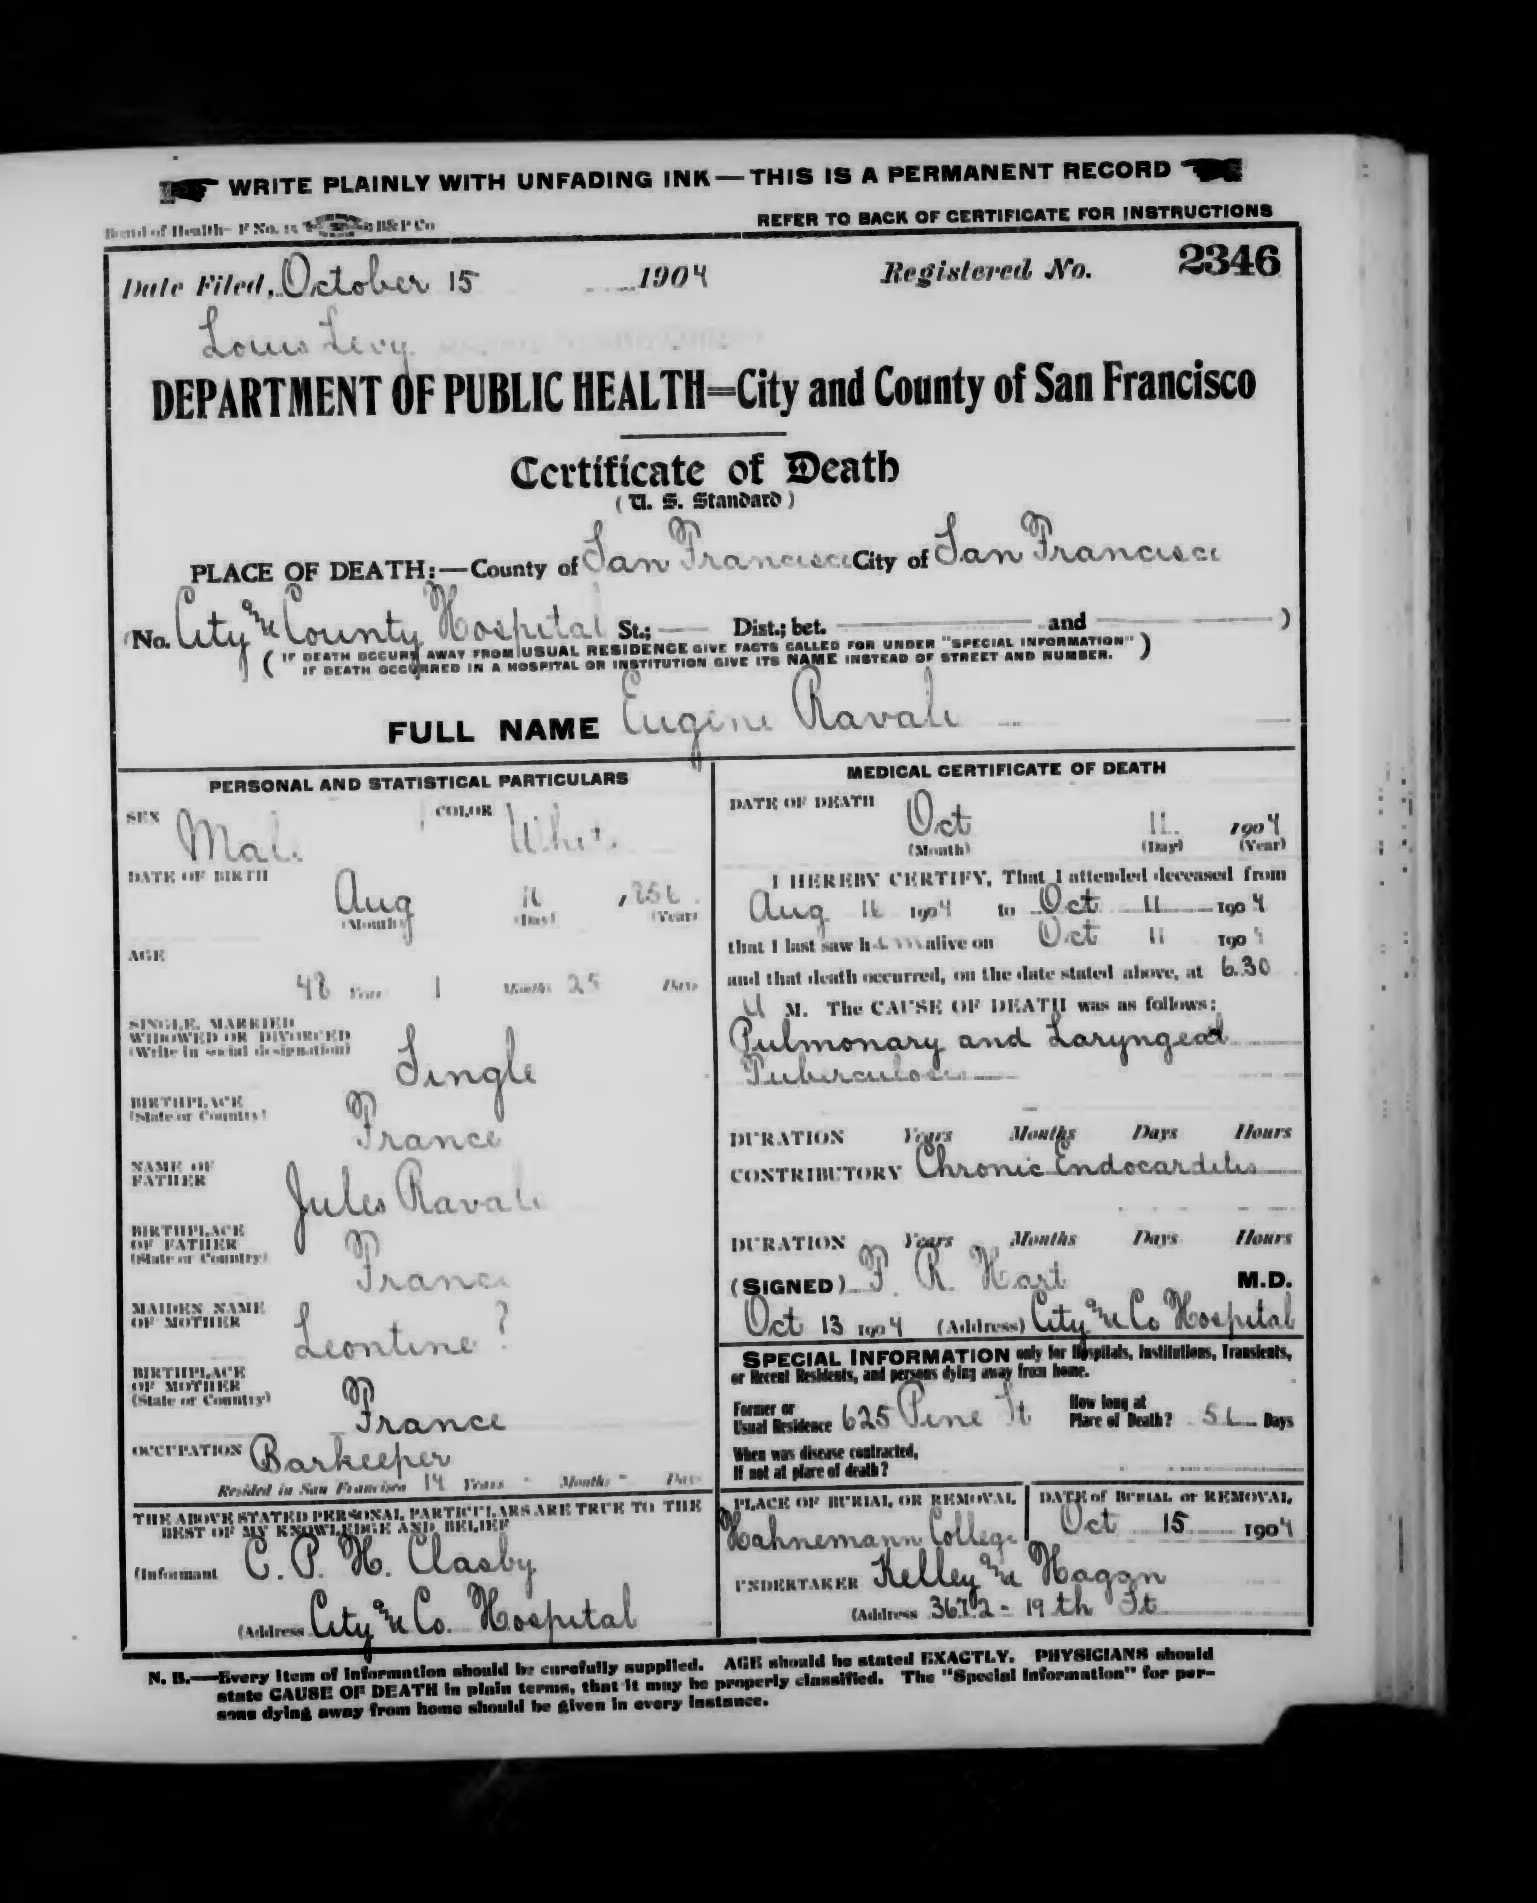 WRITE PLAINLY WITH UNFADING INK—THIS IS A PERMANENT RECORD
Board of Health—F No. 15 B&P Co
REFER TO BACK OF CERTIFICATE FOR INSTRUCTIONS
Date Filed, October 15 1904 Registered No. 2346
Louis Levy
DEPARTMENT OF PUBLIC HEALTH=City and County of San Francisco
Certificate of Death
(U. S. Standard)
PLACE OF DEATH:—County of San Francisco City of San Francisco
(No. City and County Hospital St.; Dist.; bet. and )
( IF DEATH OCCURS AWAY FROM USUAL RESIDENCE GIVE FACTS CALLED FOR UNDER "SPECIAL INFORMATION" )
IF DEATH OCCURRED IN A HOSPITAL OR INSTITUTION GIVE ITS NAME INSTEAD OF STREET AND NUMBER.
FULL NAME Eugene
PERSONAL AND STATISTICAL PARTICULARS
SEX Male COLOR White
DATE OF BIRTH
Aug
(Month) (Day) (Year)
AGE
48 Years 1 Months 25 Days
SINGLE, MARRIED
WIDOWED OR DIVORCED
(Write in social designation)
Single
BIRTHPLACE
(State or Country)
France
NAME OF
FATHER
Jules
BIRTHPLACE
OF FATHER
(State or Country)
France
MAIDEN NAME
OF MOTHER
Leontine ?
BIRTHPLACE
OF MOTHER
(State or Country)
France
OCCUPATION Barkeeper
Resided in San Francisco 14 Years - Months - Days
THE ABOVE STATED PERSONAL PARTICULARS ARE TRUE TO THE
BEST OF MY KNOWLEDGE AND BELIEF
(Informant C. P. H. Clasby
(Address City and Co. Hospital
MEDICAL CERTIFICATE OF DEATH
DATE OF DEATH
Oct 11 1904
(Month) (Day) (Year)
I HEREBY CERTIFY, That I attended deceased from
Aug 1904 to Oct 11 1904
that I last saw him alive on Oct 11 1904
and that death occurred, on the date stated above, at 6.30
M. The CAUSE OF DEATH was as follows:
Pulmonary and Laryngeal
Tuberculosis
DURATION Years Months Days Hours
CONTRIBUTORY Chronic Endocarditis
DURATION Years Months Days Hours
(SIGNED) F. R. Hart M.D.
Oct 13 1904 (Address) City and Co Hospital
SPECIAL INFORMATION only for Hospitals, Institutions, Transients,
or Recent Residents, and persons dying away from home.
Former or
Usual Residence 625 Pine St
How long at
Place of Death? Days
When was disease contracted,
If not at place of death?
PLACE OF BURIAL OR REMOVAL
Hahnemann College
DATE of BURIAL or REMOVAL
Oct 15 1904
UNDERTAKER Kelley and Hagan
(Address 3672 - 19th St
N. B.—Every item of information should be carefully supplied. AGE should be stated EXACTLY. PHYSICIANS should
state CAUSE OF DEATH in plain terms, that it may be properly classified. The "Special Information" for per-
sons dying away from home should be given in every instance.